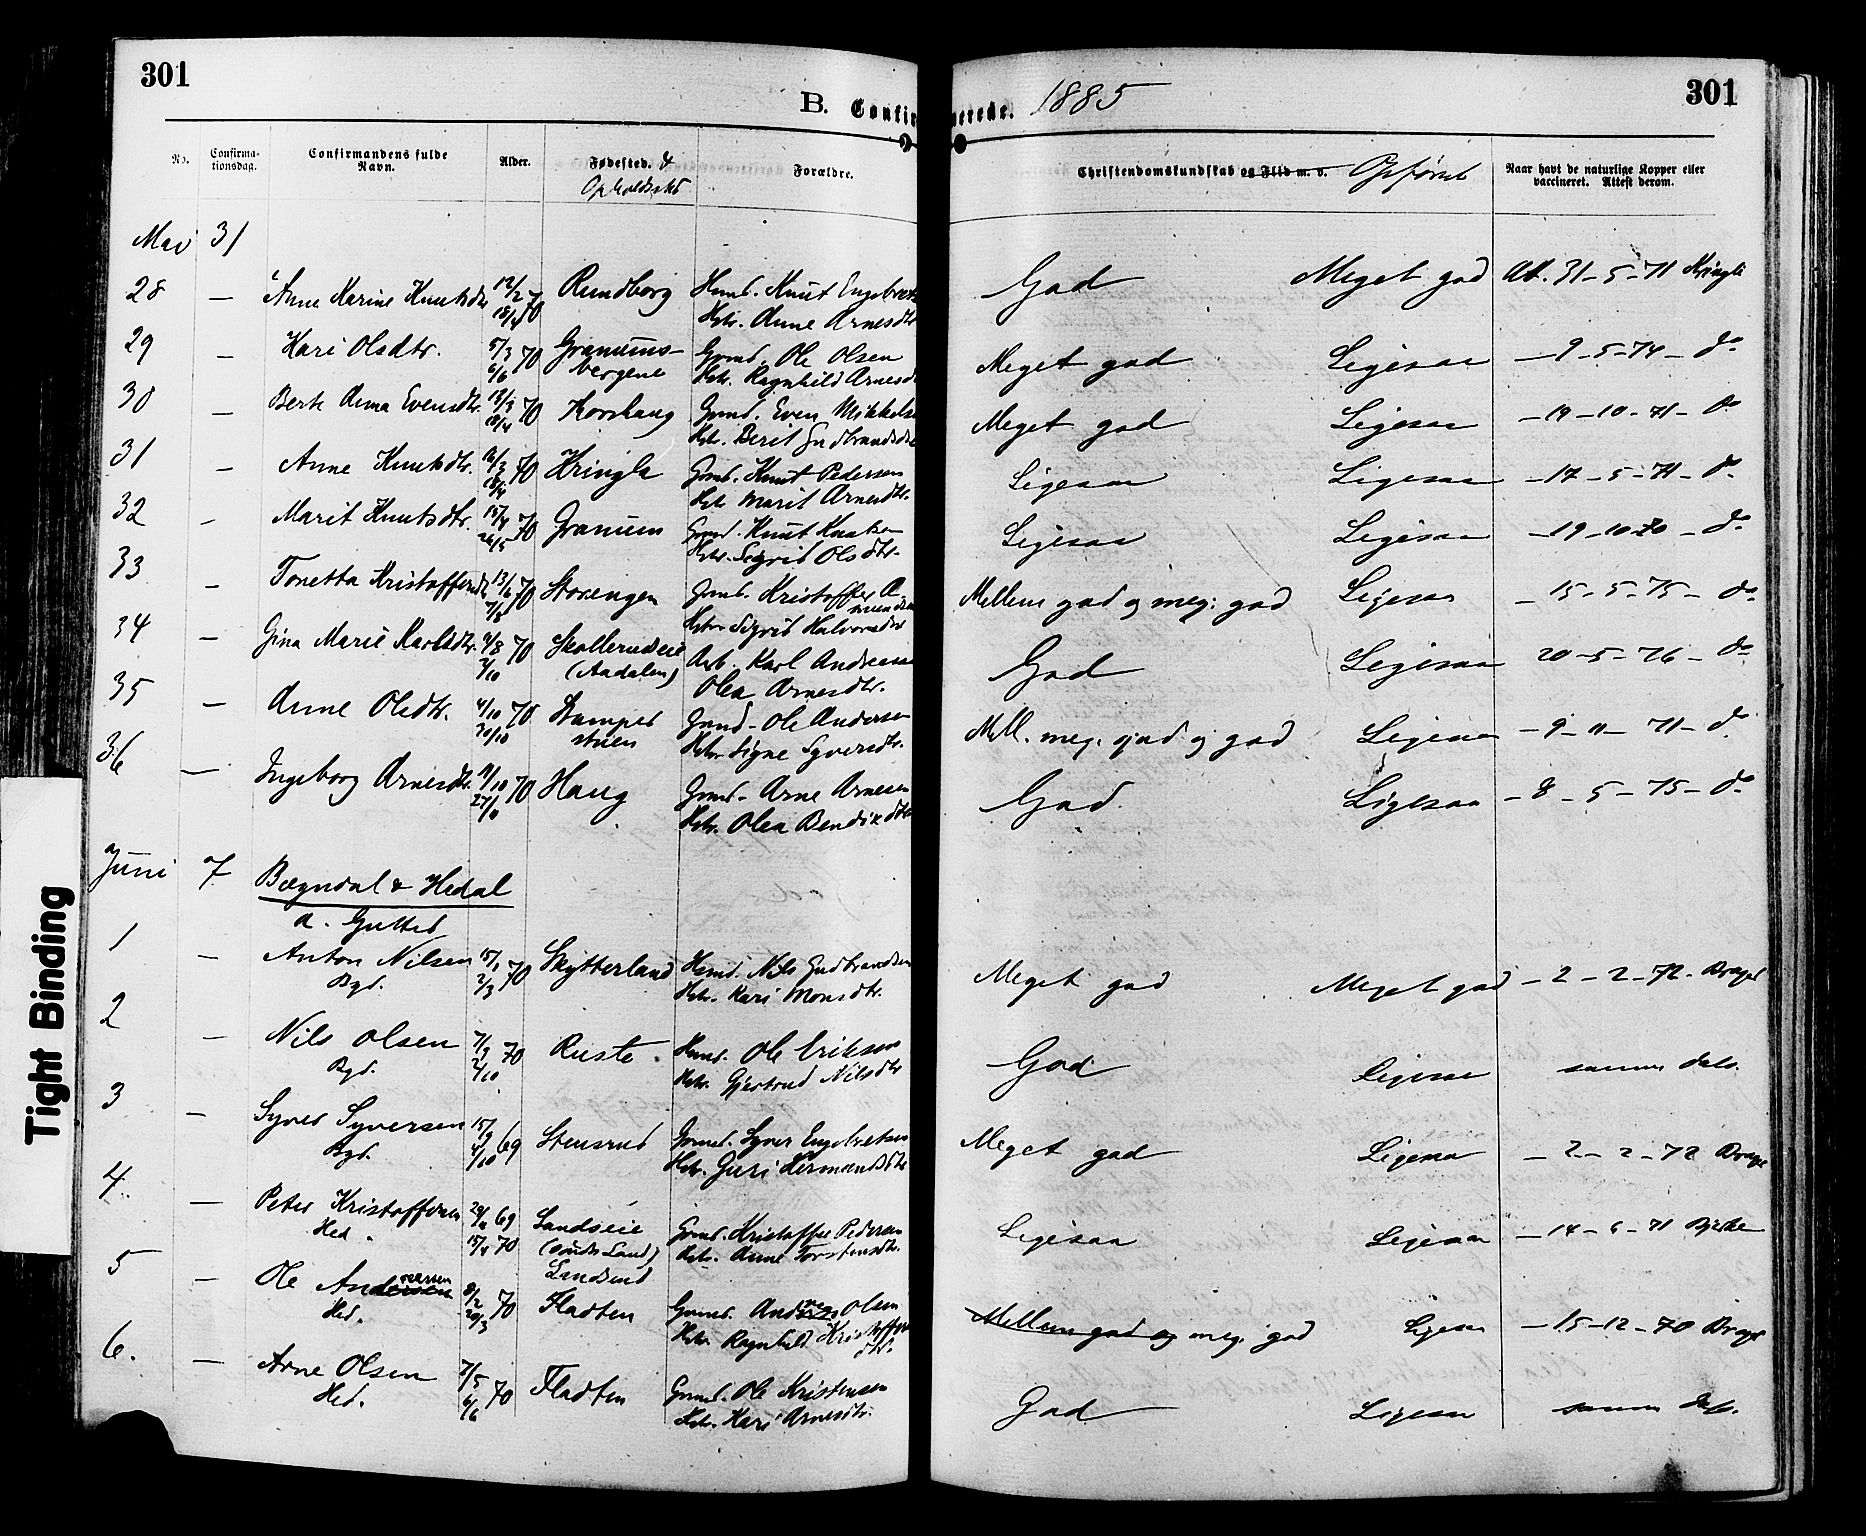 301
B. Confirmerede. 1885
301
No.
Confirma-
tionsdag.
Confirmandens fulde
Navn.
Alder.
Fødested. &
Opholdssted
Forældre.
Christendomskundskab og Flid m. v. Opførsel
Naar havt de naturlige Kopper eller
vaccineret. Attest derom.
Mai 31
28 — Anne Karine Knutsdtr 12/2 70 Rundborg Hmd. Knut Engebrets God Meget god Att. 31-5-71 Kringla
18/4 Hstr. Anne Arnesdtr
29 — Kari Olsdtr. 5/3 70 Granums- Gmd. Ole Olsen Meget god Ligesaa — 9-5-74 - do
6/6 bergene Hstr. Ragnhild Arnesd
30 — Berte Anna Evensdtr. 18/3 70 Korshaug Gmd. Even Mikkels Meget god Ligesaa — 19-10-71 - do
18/4 Hstr. Berit Gudbrandsdtr
31 — Anne Knutsdtr. 16/3 70 Kringla Gmd. Knut Pedersen Ligesaa Ligesaa — 17-5-71 - do
18/4 Hstr. Marit Arnesdtr.
32 — Marit Knutsdtr. 15/4 70 Granum Gmd. Knut Knutsen Ligesaa Ligesaa — 19-10-70 - do
26/5 Hstr. Sigrid Olsdtr.
33 — Tonetta Kristoffersdtr 13/6 70 Storengen Gmd. Kristoffer A- Mellem god og meg: god Ligesaa — 15-5-75 - do
7/8 mundsen
Hstr. Sigrid Halvorsdtr
34 — Gina Marie Karlsdtr. 4/8 70 Skollerudseie Arb. Karl Andreasen God Ligesaa 20-5-76 - do
2/10 (Aadalen) Olea Arnesdtr.
35 — Anne Olsdtr. 4/10 70 Stampe- Gmd. Ole Andersen Mell. meg. god og god Ligesaa — 9-11-71 - do
30/10 stuen Hstr. Signe Syversdtr.
36 — Ingeborg Arnesdtr. 11/10 70 Haug Gmd. Arne Arnesen God Ligesaa — 8-5-75 - do
Hstr. Olea Bendixdtr
Juni 7 Bægndal & Hedal
a. Gutter
1 — Anton Nilsen 15/1 70 Skytterland Hmd. Nils Gudbrandsen Meget god Meget god — 2-2-72 - Brager
Bgd. 2/3 Hstr. Kari Monsdtr.
2 — Nils Olsen 7/9 70 Ruste Hmd. Ole Eriksen God Ligesaa samme Dato.
Bgd. 2/10 Hstr. Gjertrud Nilsdtr
3 — Syver Syversen 15/9 69 Stensrud Gmd. Syver Engebretsen Meget god Ligesaa — 2-2-72 Brager
Bgd. Hstr. Guri Hermandsdtr
4. — Peter Kristoffersen 69 Landseie Gmd. Kristoffer Pedersen Ligesaa Ligesaa — 14-6-71 Bjerke
Hed. 15/4 70 (søndre Land) Hstr. Anne Torstensdtr.
Landsend
5 — Ole Andersen reasen 8/2 70 Fladten Gmd. Andreas Olsen Mellem god og meg. god Ligesaa — 15-12-70 Brager
Hed. 20/3 Hstr. Ragnhild Kristoffers
dtr.
6. — Arne Olsen 7/5 70 Fladten Gmd. Ole Kristensen God Ligesaa samme Dato.
Hed. 6/6 Hstr. Kari Arnesdtr.
Tight Binding